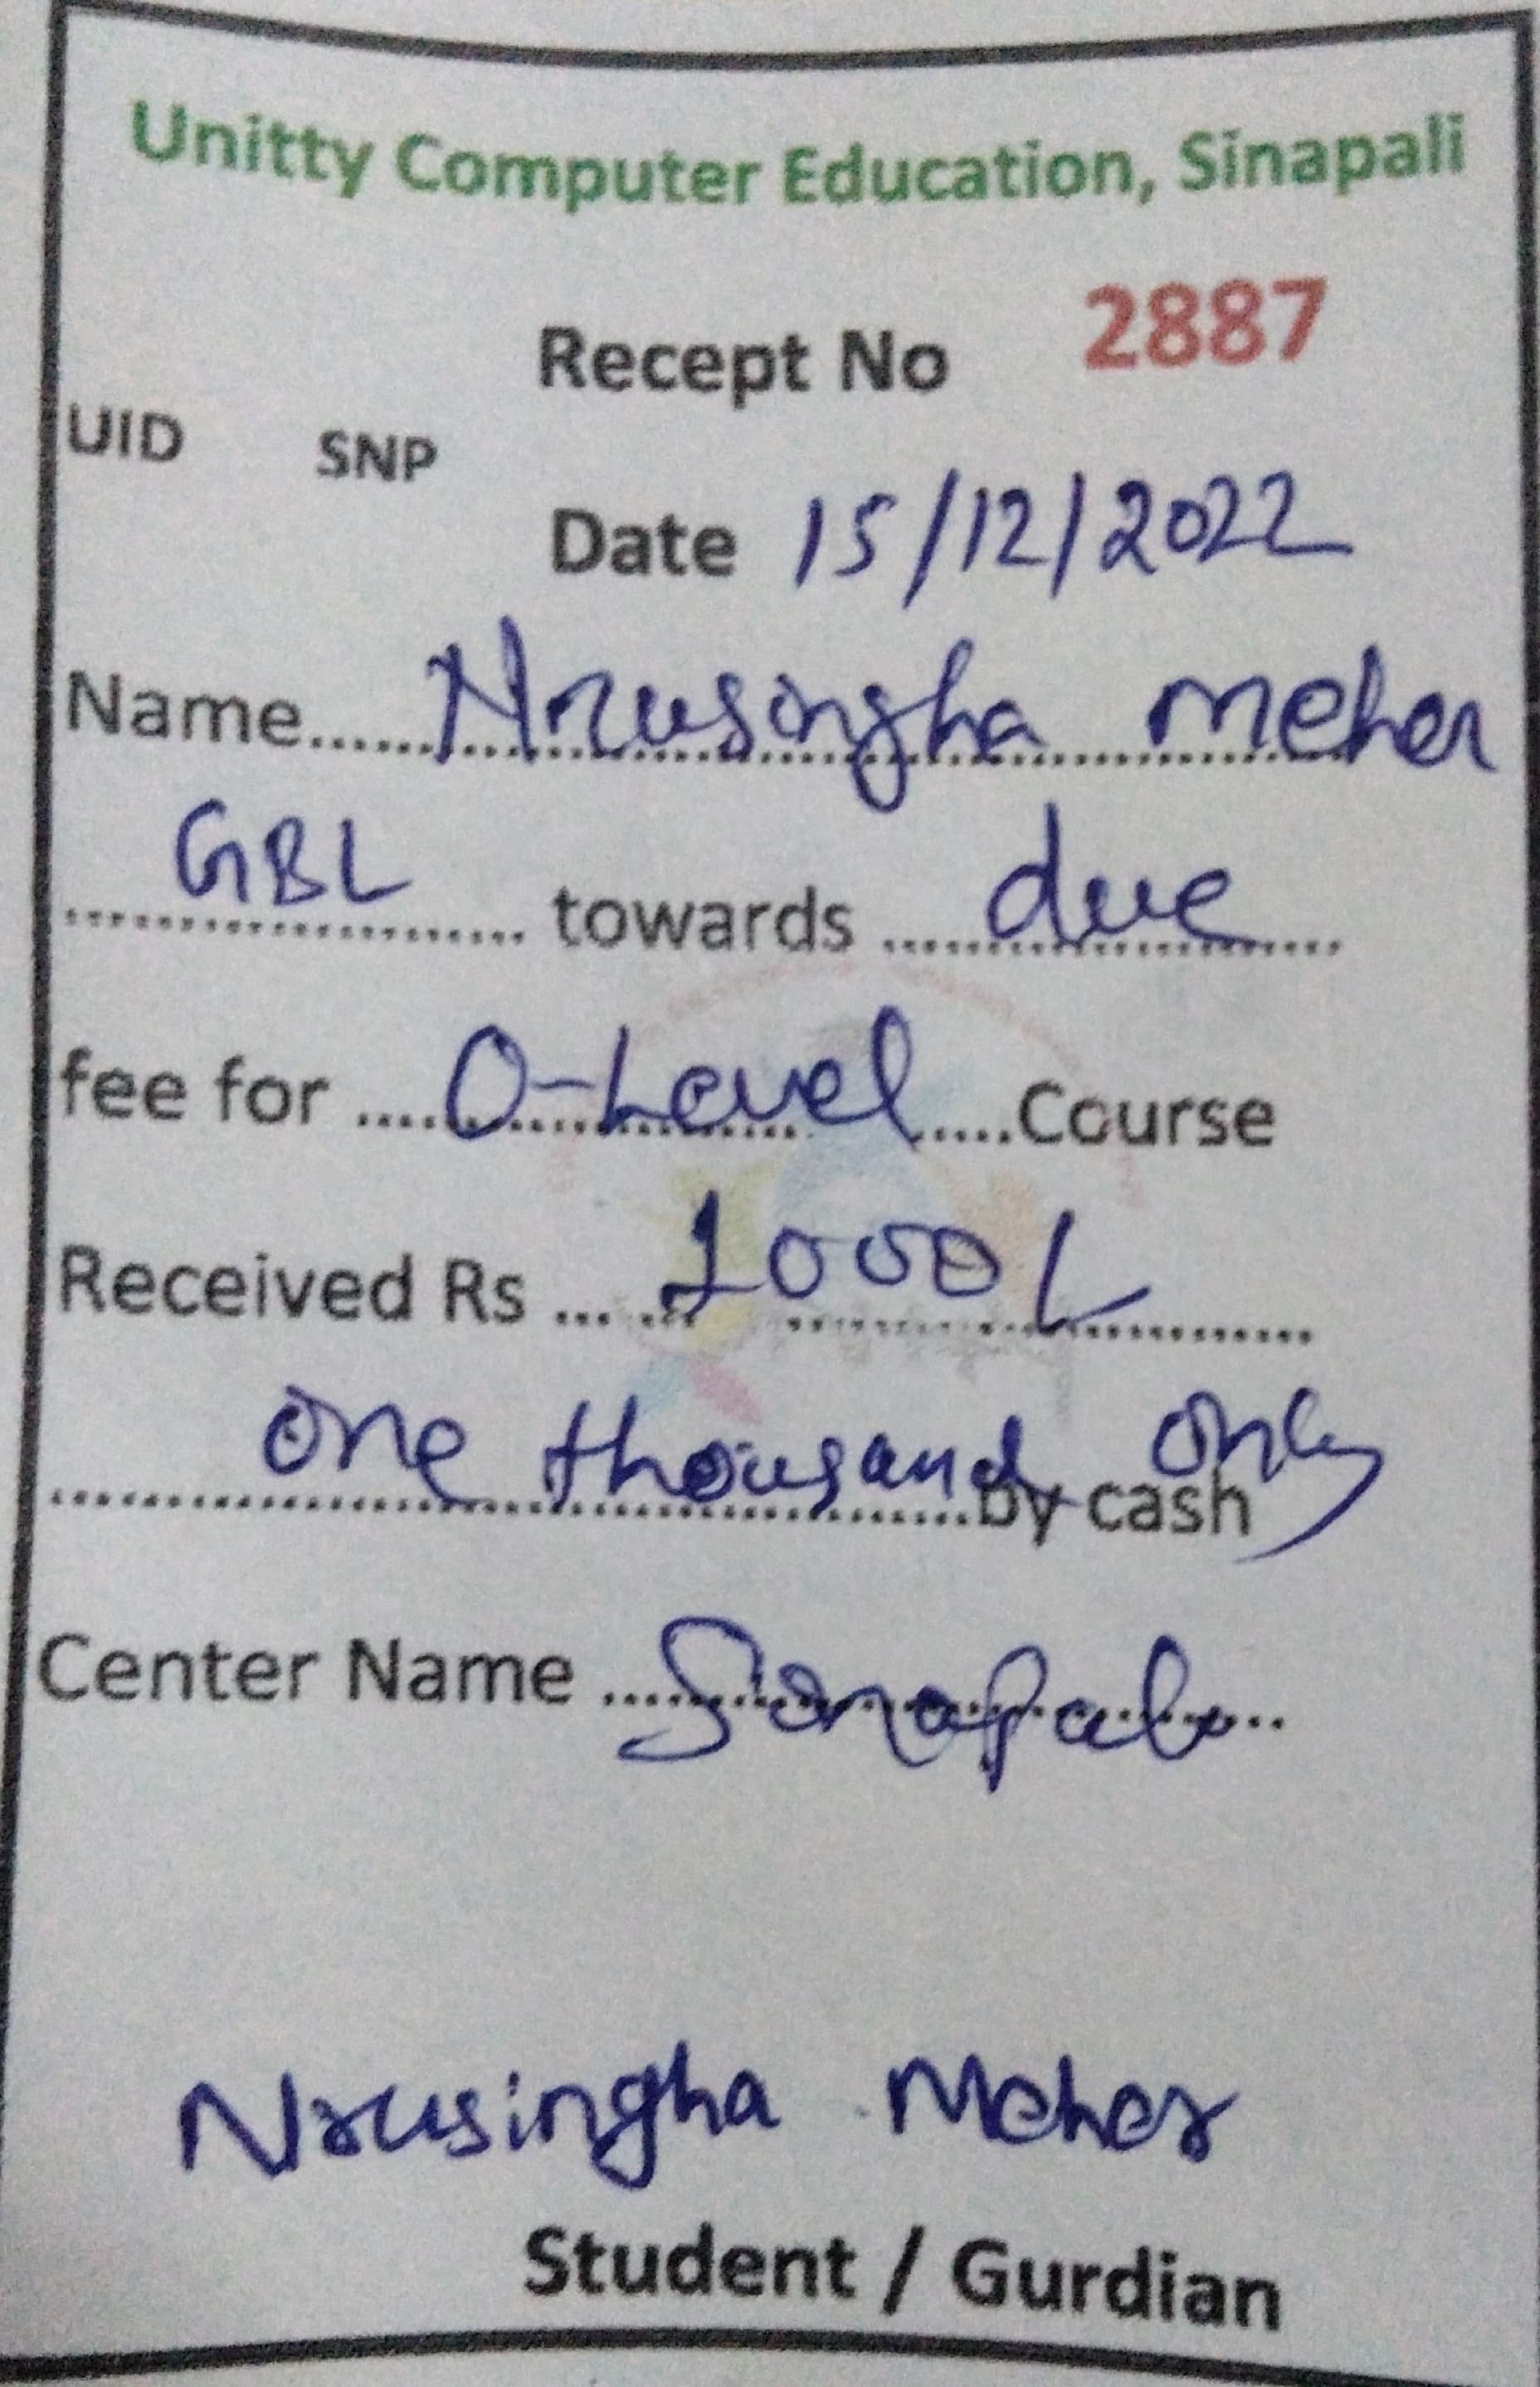 Unitty Computer Education, Sinapali
Recept No 2887
UID SNP
Date 15/12/2022
Name...... Nrusingha meher
GBL towards due
fee for .... O-Level .....Course
Received Rs ... 1000/-
one thousand only by cash
Center Name .... Sinapali
Nrusingha Meher
Student / Gurdian